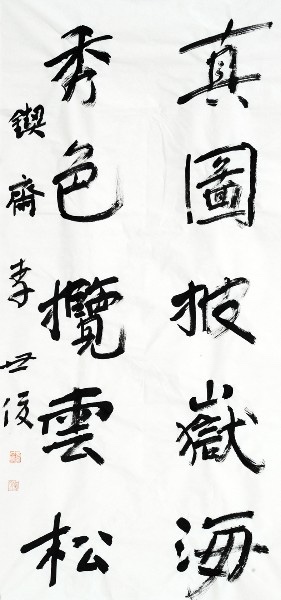 真圖披嶽海
秀色攬雲松
鍥齋李世俊